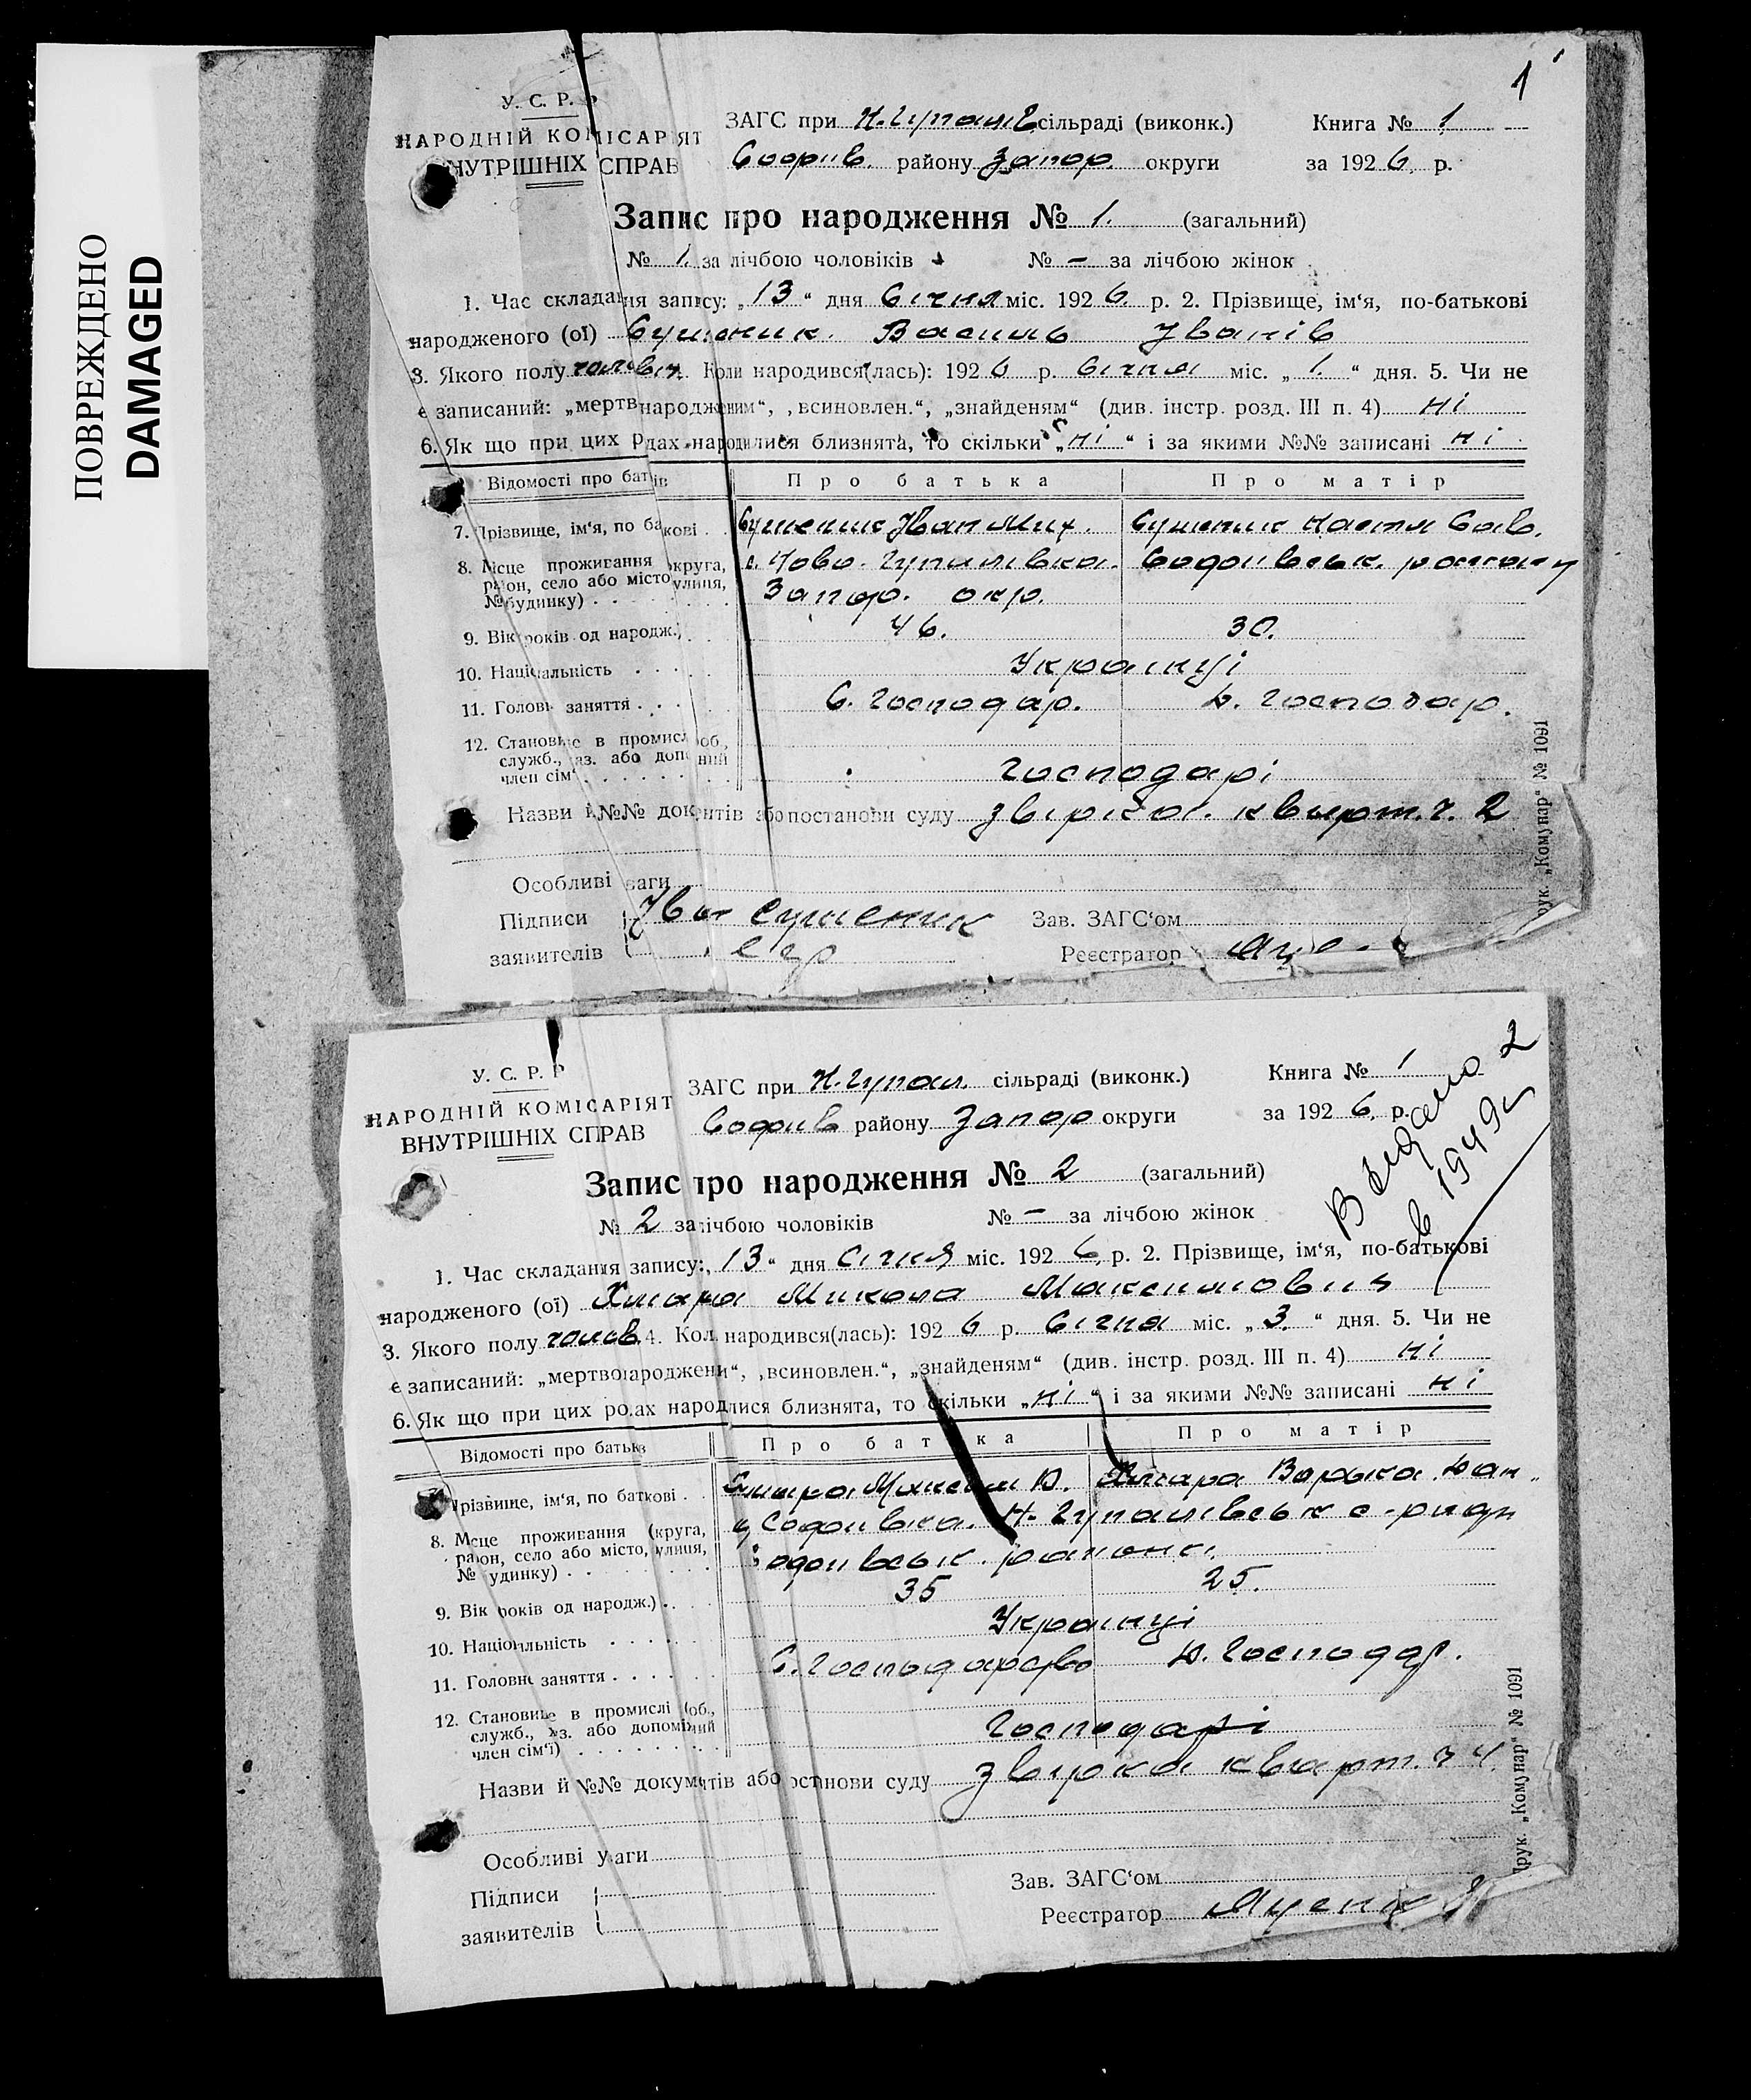 ПОВРЕЖДЕНО
DAMAGED
1
У. С. Р. Р
НАРОДНІЙ КОМІСАРІЯТ
ВНУТРІШНІХ СПРАВ
ЗАГС при Н.Гупалів сільраді (виконк.) Книга № 1
Софіив. району Запор. округи за 192 6 р.
Запис про народження № 1. (загальний)
№ 1. за лічбою чоловіків № – за лічбою жінок
1. Час складання запису: „ 13 “ дня Січня міс. 192 6 р. 2. Прізвище, ім‘я, по-батькові
народженого (ої) Сушеник. Василь Іванів
3. Якого полу чолвіч. Коли народився(лась): 192 6 р. Січня міс. „ 1. “ дня. 5. Чи не
є записаний: „мертвнародженим“, „всиновлен.“, „знайденям“ (див. інстр. розд. III п. 4) Ні
6. Як що при цих родах народилися близнята, то скільки „ ні “ і за якими №№ записані ні
Відомості про батьків Про батька Про матір
7. Прізвище, ім‘я, по батькові . . Сушеник Іван Мих. Сушеник Настя Сав.
8. Місце проживання округа, с. Ново-Гупалівка. Софіївськ. району
район, село або місто улиця, Запор. окр.
№ будинку) . . .
9. Вік років од народж.) . . 46. 30.
10. Національність . . . . Українці
11. Головн. заняття . . . . С. Господар. Д. Господар.
12. Становище в промислі об.,
служб., яз. або допоміжний
член сім‘ї . . . . . . . Господарі
Назви й №№ документів або постанови суду звірка. кварт.ч. 2
Особливі уваги
Підписи Іван Сушеник Зав. ЗАГС‘ом
заявителів Реєстратор
Друк. „Комунар“ № 1091
У. С. Р. Р
НАРОДНІЙ КОМІСАРІЯТ
ВНУТРІШНІХ СПРАВ
ЗАГС при Н.Гупал. сільраді (виконк.) Книга № 1
Софиив району Запор округи за 192 6 р.
Видано 2
в 1949 г
Запис про народження № 2 (загальний)
№ 2 за лічбою чоловіків № – за лічбою жінок
1. Час складання запису: „ 13 “ дня Січня міс. 192 6 р. 2. Прізвище, ім‘я, по-батькові
народженого (ої) Хмара Микола Максимович
3. Якого полу чолов. 4. Кол. народився(лась): 192 6 р. Січня міс. „ 3. “ дня. 5. Чи не
є записаний: „мертвонароджени“, „всиновлен.“, „знайденям“ (див. інстр. розд. III п. 4) ні
6. Як що при цих родах народилися близнята, то скільки „ ні “ і за якими №№ записані ні
Відомості про батьків Про батька Про матір
Прізвище, ім‘я, по батькові . . Хмара Максим Д. Хмара Варька Дан.
8. Місце проживання (круга, Софиівка. Н-Гупалівськ с-ради
район, село або місто, улиця, Софиівськ. району
№ будинку) . . .
9. Вік років од народж.) . . 35 25.
10. Національність . . . . . Українці
11. Головне заняття . . . . . С. Господарство Д. Господар.
12. Становище в промислі (об.,
служб., яз. або допоміжний
член сім‘ї) . . . . . . . Господарі
Назви й №№ документів або останови суду звірка кварт. ч 4.
Особливі уваги
Підписи Зав. ЗАГС‘ом
заявителів Реєстратор
Друк. „Комунар“ № 1091